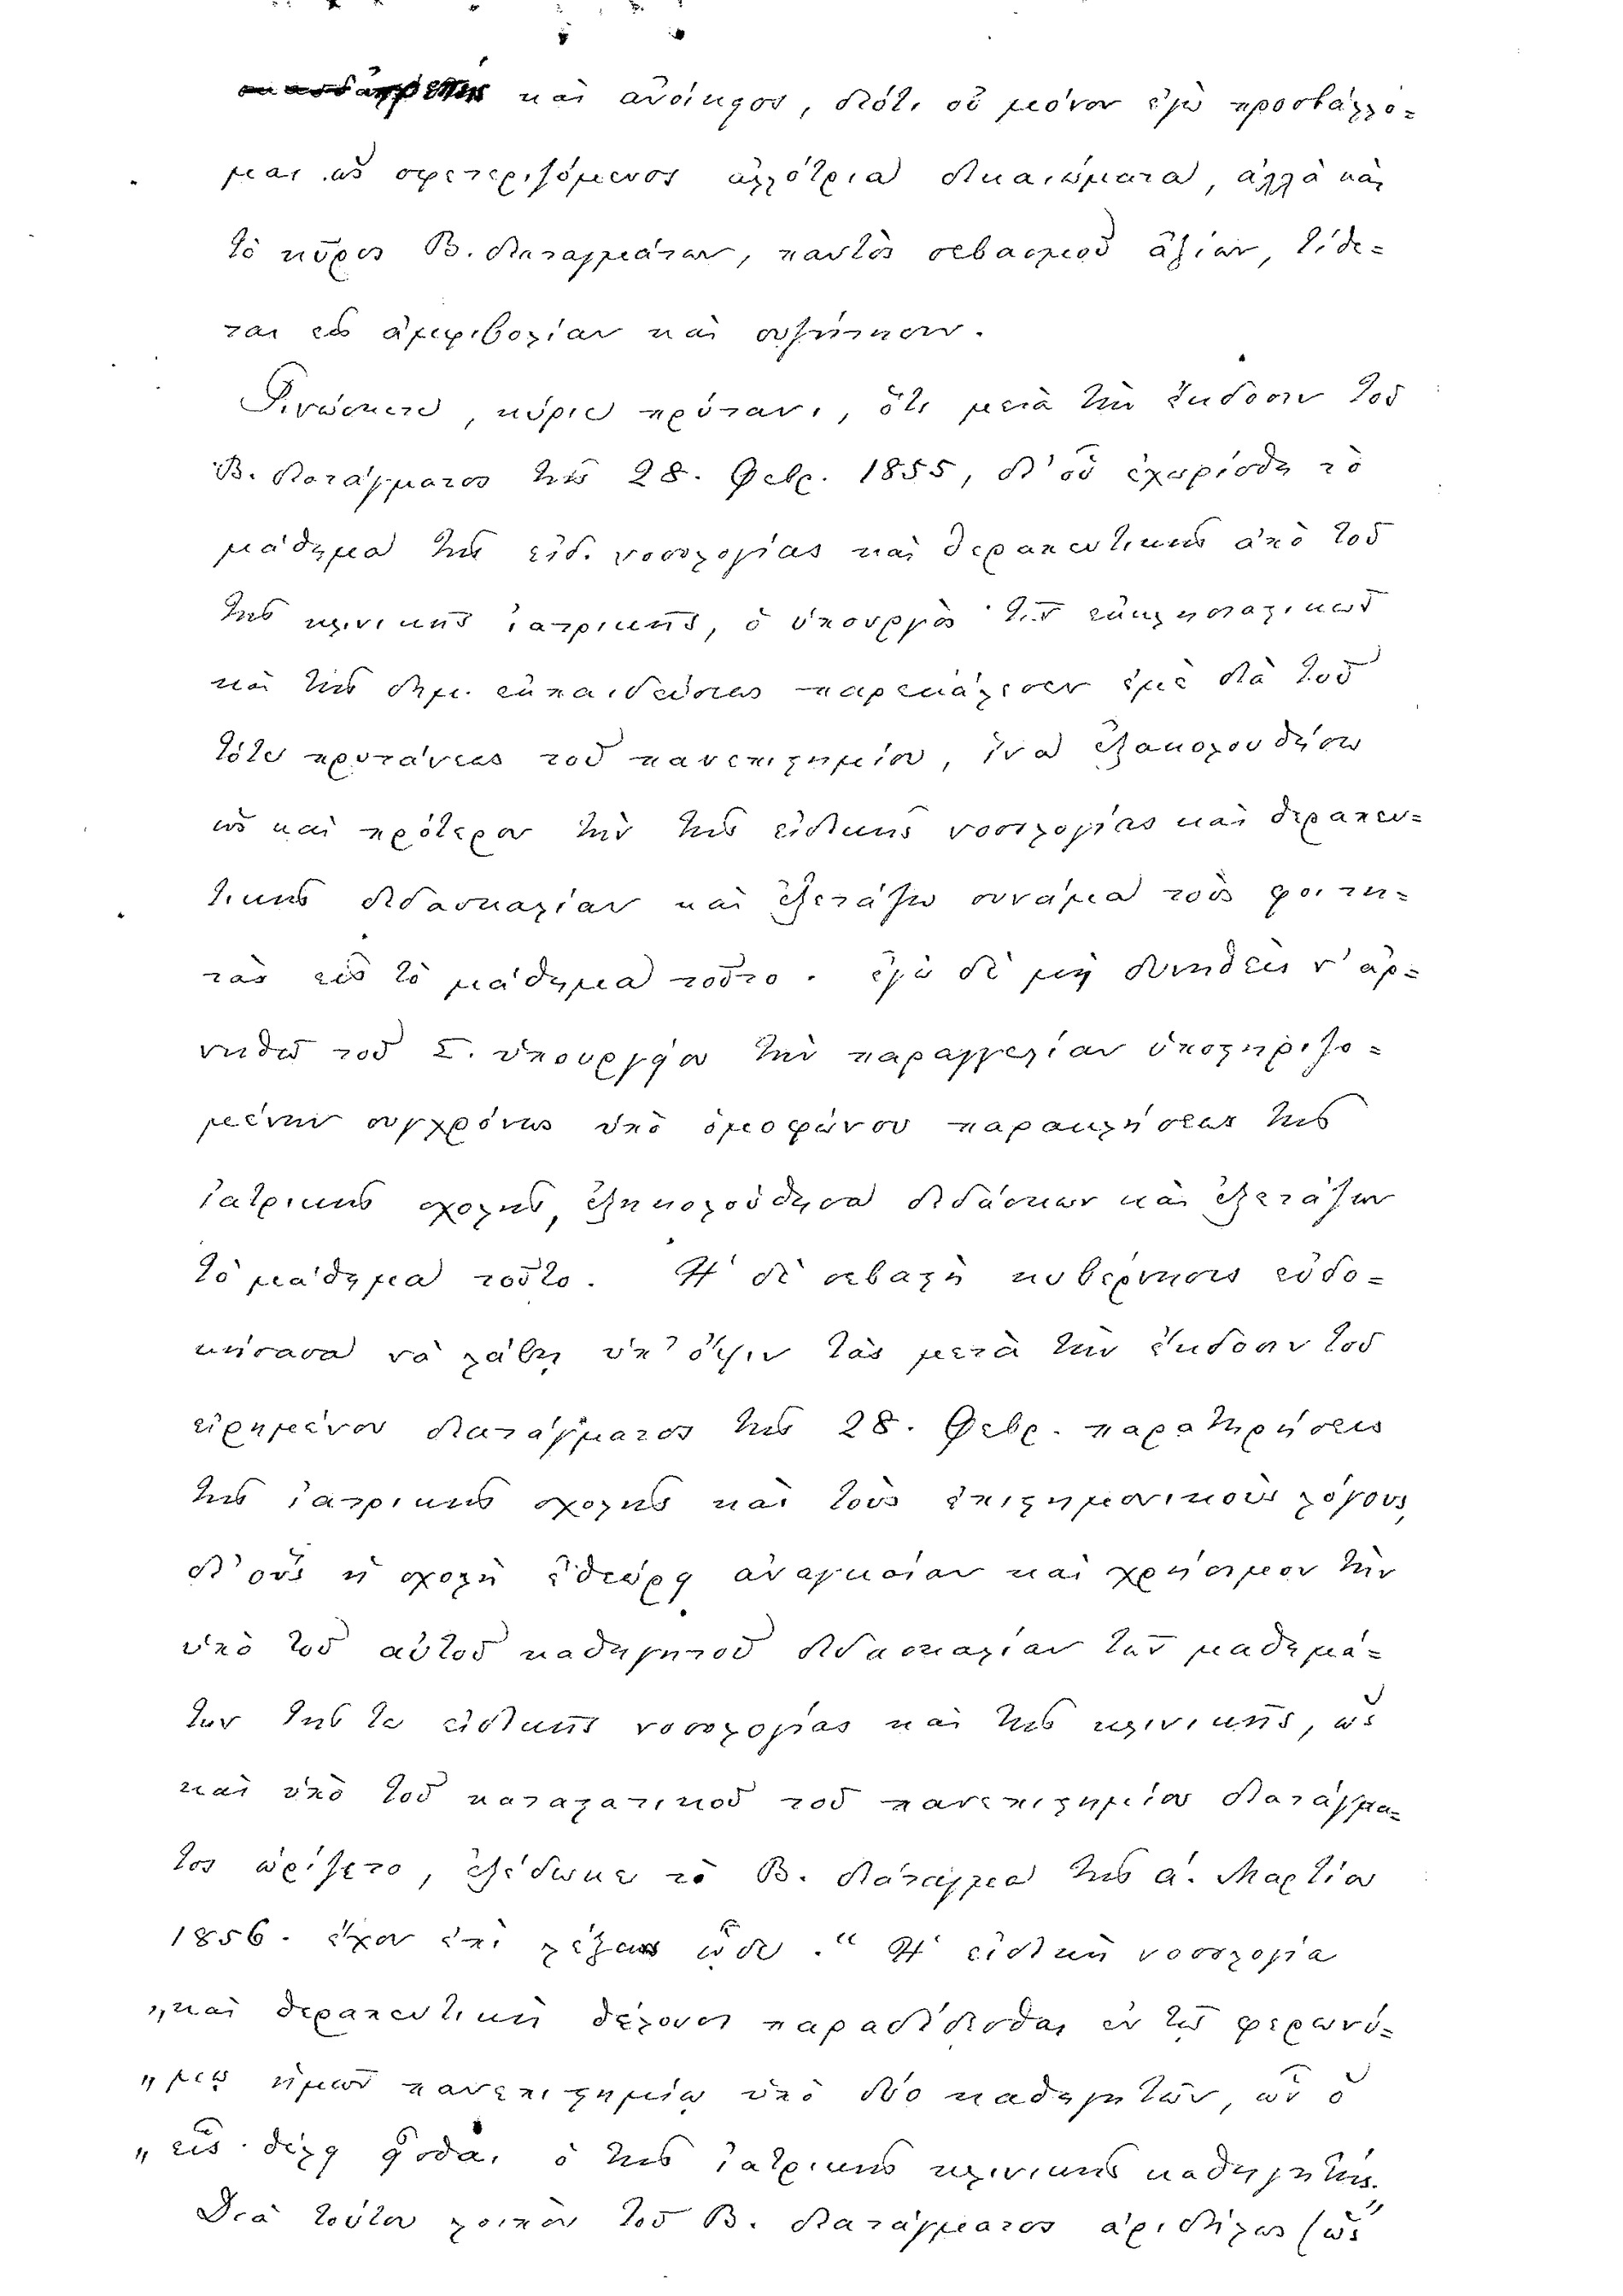 καὶ ἀνοίκειος, διότι οὐ μόνον ἐγὼ προσβάλλο-
μαι ὡς σφετεριζόμενος ἀλλότρια δικαιώματα, ἀλλὰ καὶ
τὸ κῦρος Β. διαταγμάτων, παντὸς σεβασμοῦ ἀξίων, τίθε-
ται εἰς ἀμφιβολίαν καὶ συζήτησιν.
Γινώσκετε, κύριε πρύτανι, ὅτι μετὰ τὴν ἔκδοσιν τοῦ
Β. διατάγματος τῆς 28. Φεβρ. 1855, δι' οὗ ἐχωρίσθη τὸ
μάθημα τῆς εἰδ. νοσολογίας καὶ θεραπευτικῆς ἀπὸ τοῦ
τῆς κλινικῆς ἰατρικῆς, ὁ ὑπουργὸς τῶν ἐκκλησιαστικῶν
καὶ τῆς δημ. ἐκπαιδεύσεως παρεκάλεσεν ἐμὲ διὰ τοῦ
τότε πρυτάνεως τοῦ πανεπιστημίου, ἵνα ἐξακολουθήσω
ὡς καὶ πρότερον τὴν τῆς εἰδικῆς νοσολογίας καὶ θεραπευ-
τικῆς διδασκαλίαν καὶ ἐξετάζω συνάμα τοὺς φοιτη-
τὰς εἰς τὸ μάθημα τοῦτο. ἐγὼ δὲ μὴ δυνηθεὶς ν' ἀρ-
νηθῶ τοῦ Σ. ὑπουργείου τὴν παραγγελίαν ὑποστηριζο-
μένην συγχρόνως ὑπὸ ὁμοφώνου παρακλήσεως τῆς
ἰατρικῆς σχολῆς, ἐξηκολούθησα διδάσκων καὶ ἐξετάζων
τὸ μάθημα τοῦτο. Ἡ δὲ σεβαστὴ κυβέρνησις εὐδο-
κήσασα νὰ λάβῃ ὑπ' ὄψιν τὰς μετὰ τὴν ἔκδοσιν τοῦ
εἰρημένου διατάγματος τῆς 28. Φεβρ. παρατηρήσεις
τῆς ἰατρικῆς σχολῆς καὶ τοὺς ἐπιστημονικοὺς λόγους,
δι' οὓς ἡ σχολὴ ἐθεώρει ἀναγκαίαν καὶ χρήσιμον τὴν
ὑπὸ τοῦ αὐτοῦ καθηγητοῦ διδασκαλίαν τῶν μαθημά-
των τῆς τε εἰδικῆς νοσολογίας καὶ τῆς κλινικῆς, ὡς
καὶ ὑπὸ τοῦ καταστατικοῦ τοῦ πανεπιστημίου διατάγμα-
τος ὡρίζετο, ἐξέδωκε τὸ Β. διάταγμα τῆς α'. Μαρτίου
1856. ἔχον ἐπὶ λέξεως ὧδε. “ Ἡ εἰδικὴ νοσολογία
„καὶ θεραπευτικὴ θέλουσι παραδίδοσθαι ἐν τῷ φερωνύ-
„μῳ ἡμῶν πανεπιστημίῳ ὑπὸ δύο καθηγητῶν, ὧν ὁ
„εἷς θέλει εἶσθαι ὁ τῆς ἰατρικῆς κλινικῆς καθηγητής."
Διὰ τούτου λοιπὸν τοῦ Β. διατάγματος ἀριδήλως (ὡς